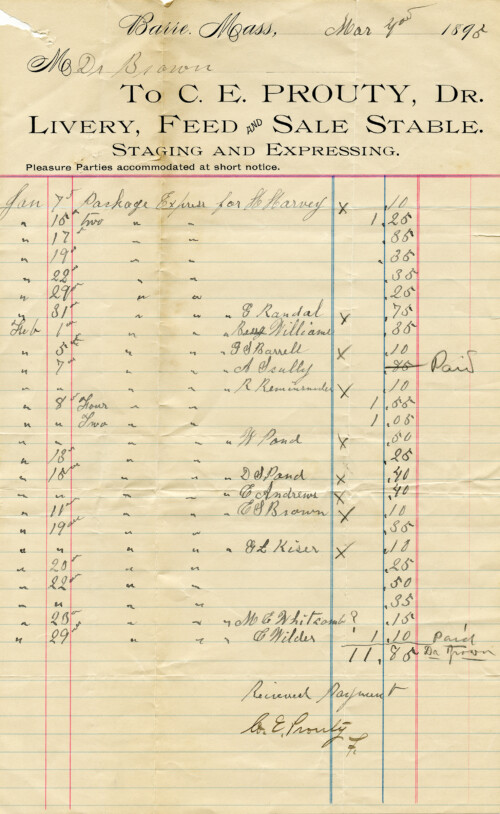 Barre. Mass, Mar 189
M Dr Brown
TO C. E. PROUTY, DR.
LIVERY, FEED AND SALE STABLE.
STAGING AND EXPRESSING.
Pleasure Parties accommodated at short notice.
Jan 7 Package Express for H Harvey x .10
" 15 two " " 1.25
" 17 " " .35
" 19 " " .35
" 22 " " .35
" 29 " " .25
" 31 " " E Randal x .75
Feb 1 " " Williams .35
" 5 " " Barrell x .10
" 7 " " A Scully Paid
" " " " R x .10
" 8 Four " " 1.55
" " Two " " 1.05
" " " " W Pond x .50
" " " .25
" 15 " " D S Pond x .40
" " " " E Andrews x .40
" 11 " " E S Brown x .10
" 19 " " .35
" " " " Kiser x .10
" 20 " " .25
" 22 " " .50
" " " " .35
" 25 " " M E Whitcomb ? .15
" 29 " " E Wilder 1.10 Paid
11.85 Dr Brown
Received Payment
C. E. Prouty